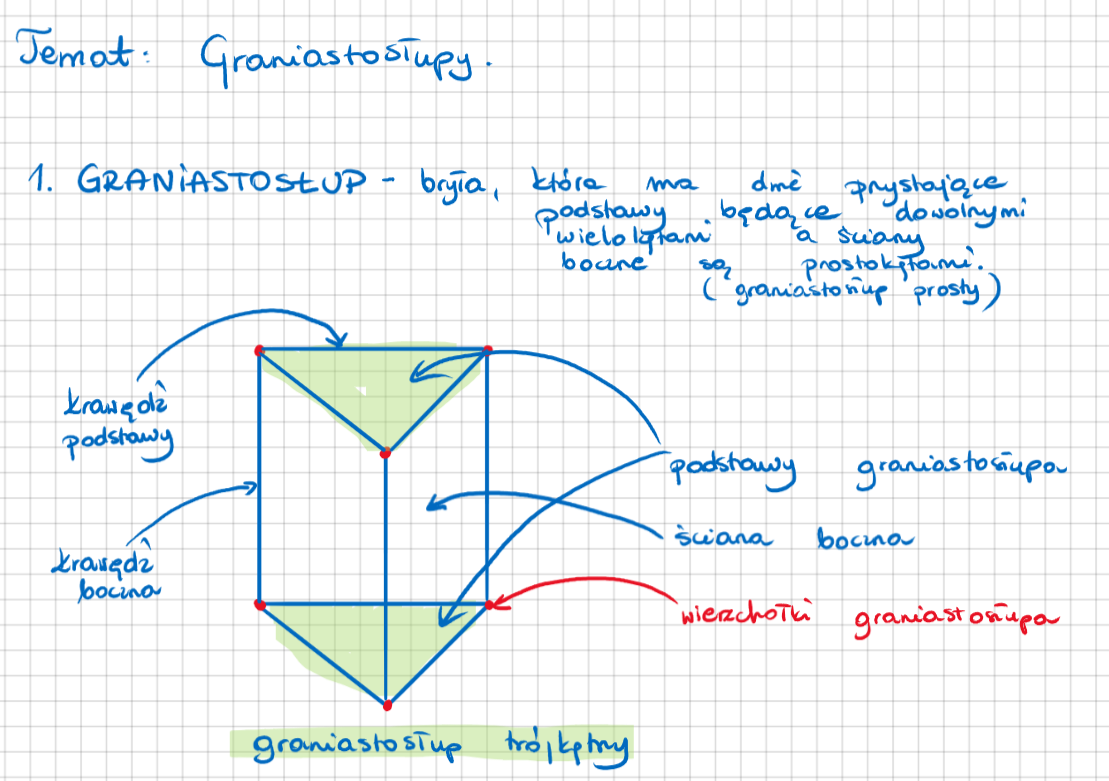 Temat: Graniastosłupy.
1. GRANIASTOSŁUP - bryła, która ma dwie przystające
podstawy będące dowolnymi
wielokątami a ściany
boczne są prostokątami.
(graniastosłup prosty)
krawędź
podstawy
podstawy graniastosłupa
ściana boczna
krawędź
boczna
wierzchołki graniastosłupa
graniastosłup trójkątny